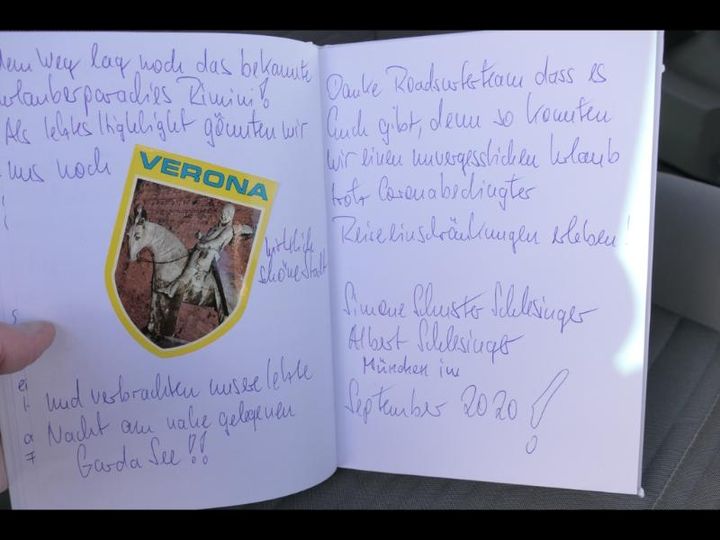 dem Weg lag noch das bekannte
urlauberparadies Rimini!
Als letztes Highlight gönnten wir
uns noch
VERONA
wirklich
schöne Stadt
und verbrachten unsere letzte
Nacht am nahe gelegenen
Garda See!!
Danke Roadsurferteam dass es
Euch gibt, denn so konnten
wir einen unvergesslichen Urlaub
trotz Coronabedingter
Reiseeinschränkungen erleben!
Simone Schuster Schlesinger
Albert Schlesinger
München im
September 2020!